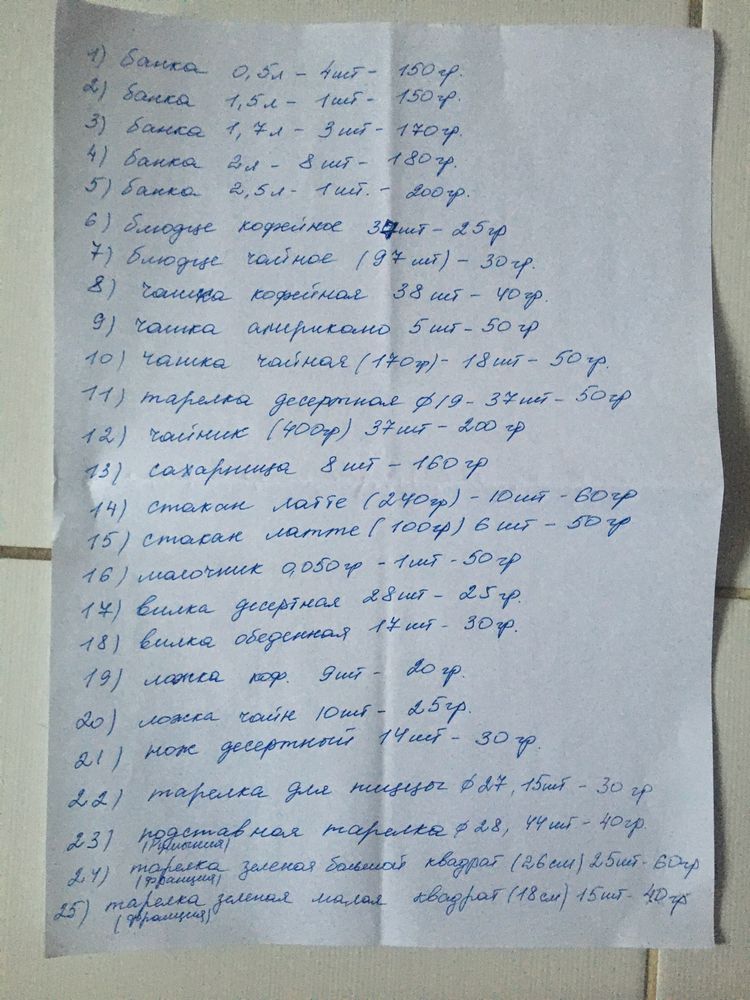 1) банка 0,5л - 4шт - 150гр.
2) банка 1,5л - 1шт - 150гр.
3) банка 1,7л - 3шт - 170гр.
4) банка 2л - 8шт - 180гр.
5) банка 2,5л - 1шт. - 200гр.
6) блюдце кофейное 37шт - 25гр
7) блюдце чайное (97шт) - 30гр.
8) чашка кофейная 38шт - 40гр.
9) чашка американо 5шт - 50гр
10) чашка чайная (170гр) - 18шт - 50гр.
11) тарелка десертная ф19 - 37шт - 50гр
12) чайник (400гр) 37шт - 200гр
13) сахарница 8шт - 160гр
14) стакан латте (240гр) - 10шт - 60гр
15) стакан латте (100гр) 6шт - 50гр
16) молочник 0,050гр - 1шт - 50гр
17) вилка десертная 28шт - 25гр.
18) вилка обеденная 17шт - 30гр.
19) ложка коф. 9шт - 20гр.
20) ложка чайн 10шт - 25гр.
21) нож десертный 14шт - 30гр.
22) тарелка для пиццы ф27, 15шт - 30гр
23) подставная тарелка ф28, 44шт - 40гр.
(Румыния)
24) тарелка зеленая большой квадрат (26см) 25шт - 60гр
(Франция)
25) тарелка зеленая малая квадрат (18см) 15шт - 40гр
(Франция)